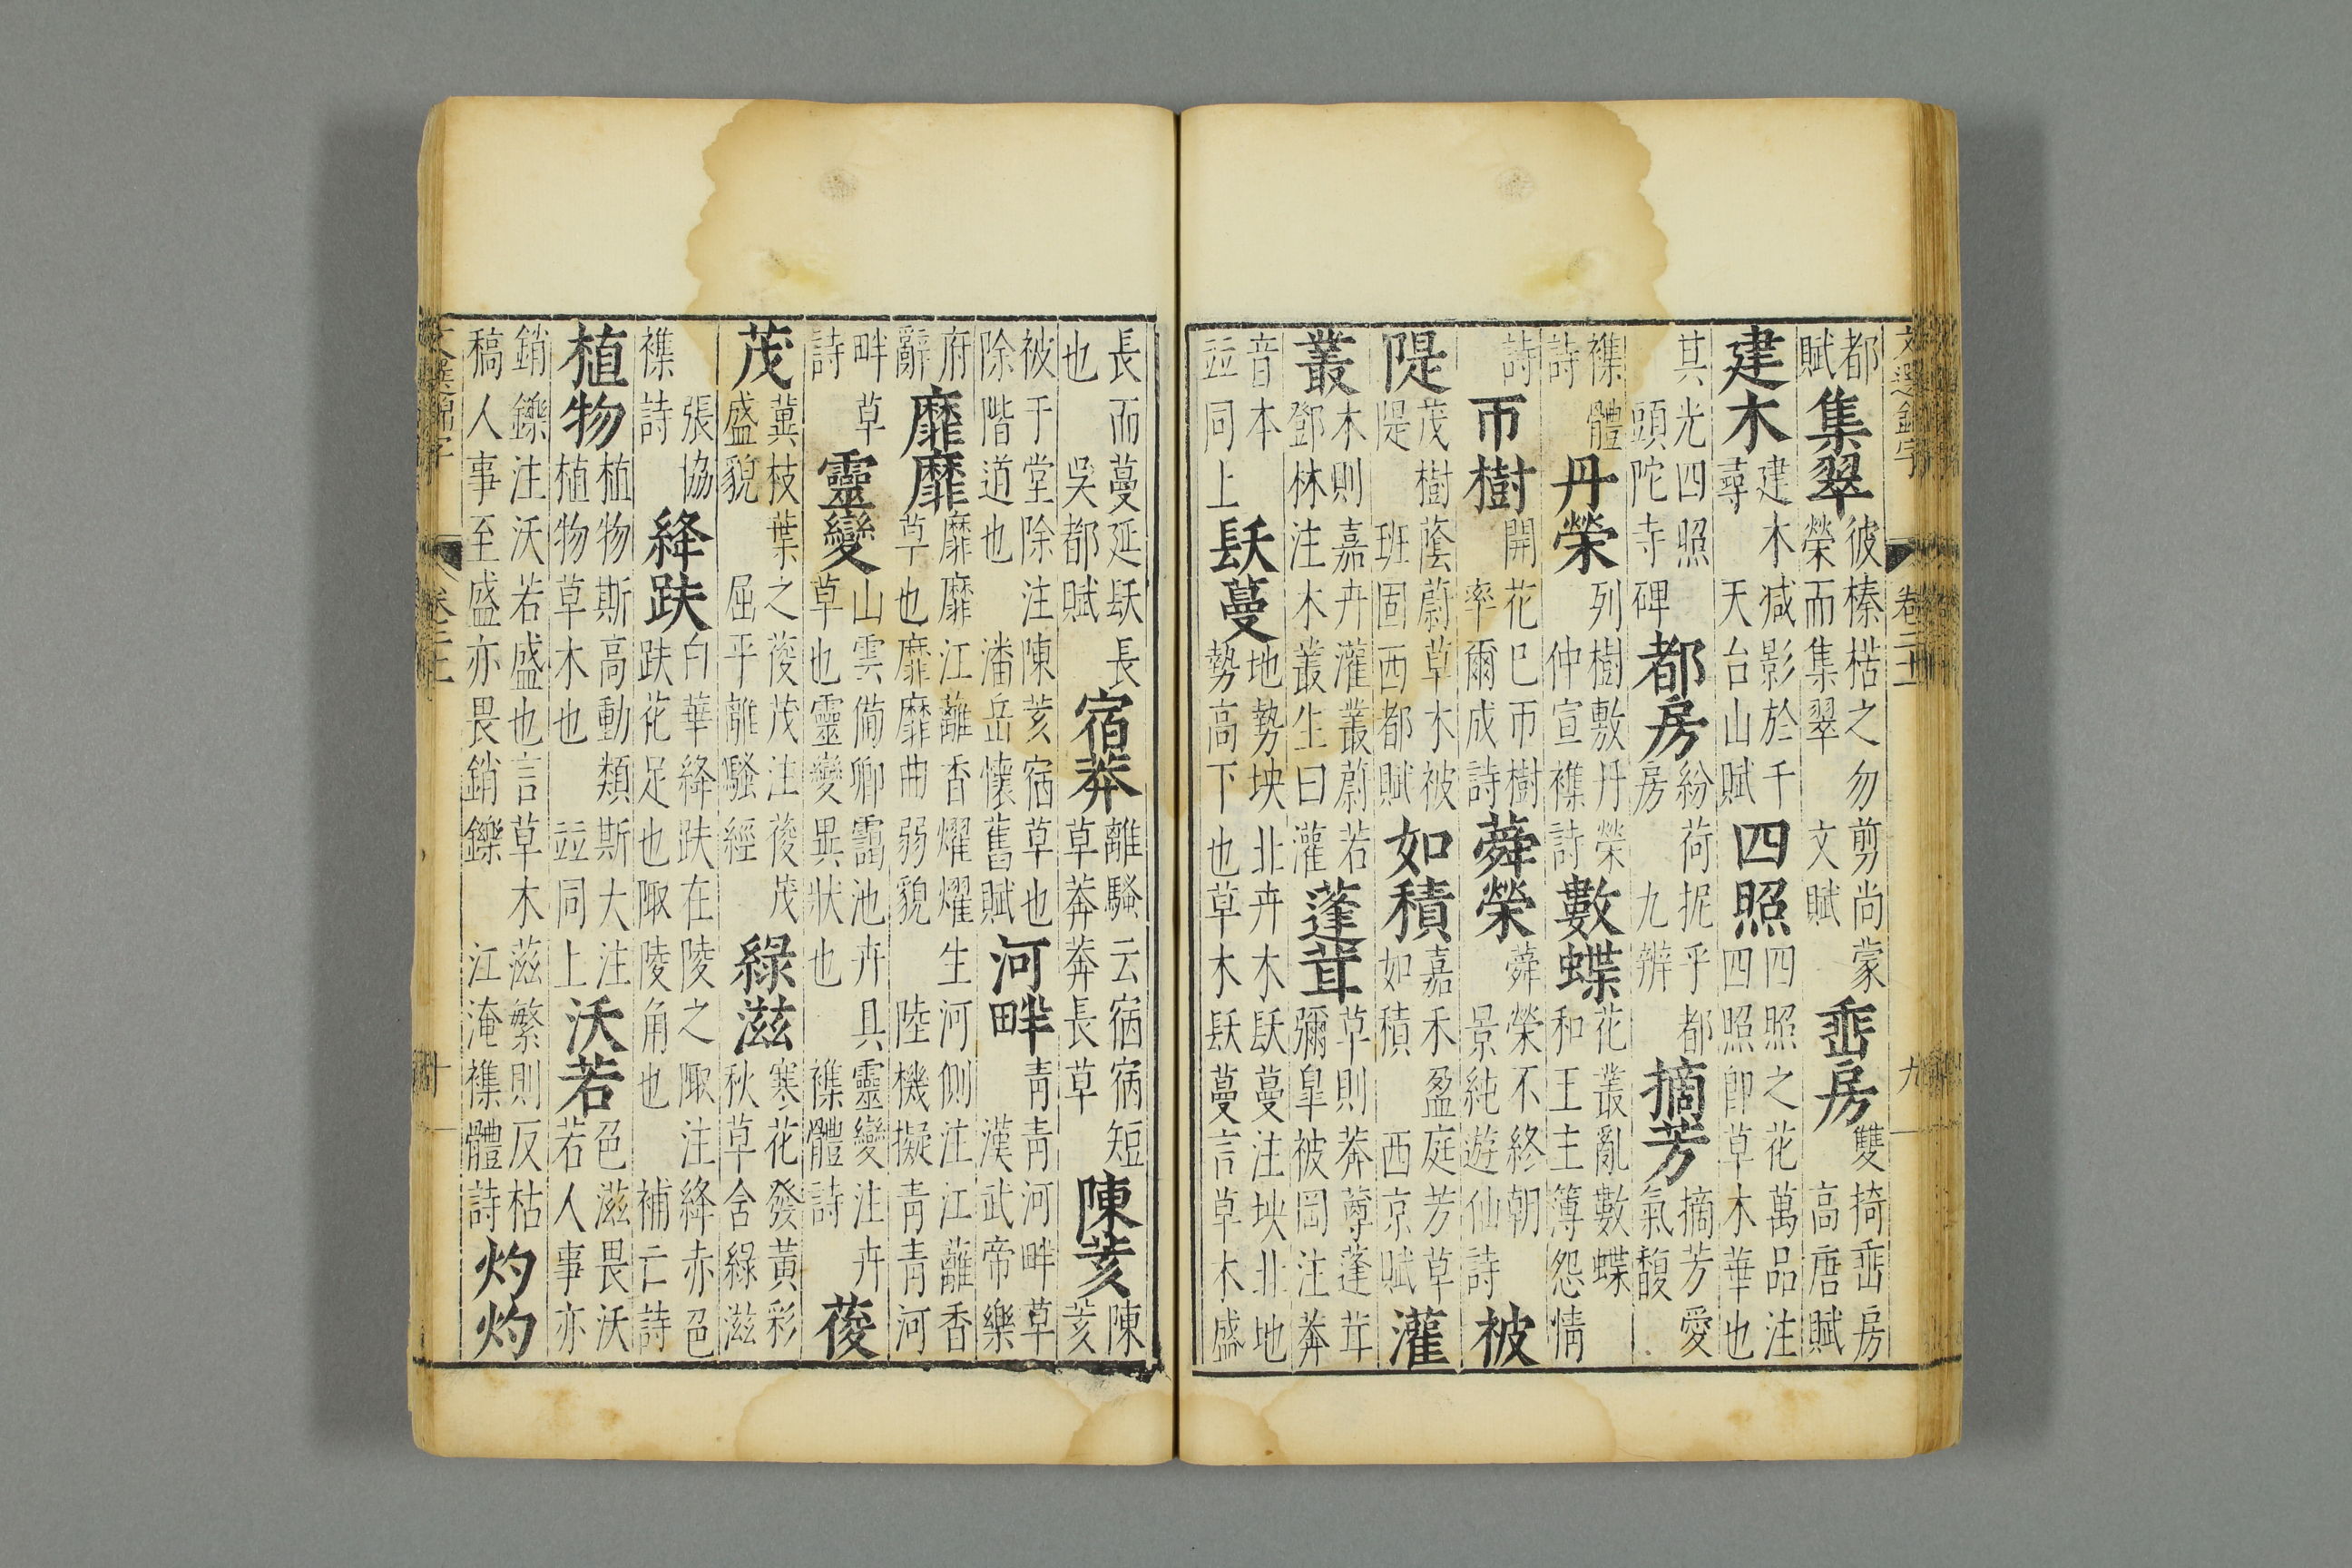 文選錦字 卷二十一 九
都賦 集翠 彼榛楛之勿剪尚蒙榮而集翠 文賦 垂房 雙掎垂房 高唐賦
建木 建木滅影於千尋 天台山賦 四照 四照之花萬品注四照即草木華也
其光四照 頭陀寺碑 都房 紛荷抳乎都房 九辨 摘芳 摘芳愛氣馥
襍體詩 丹榮 列樹敷丹榮 仲宣襍詩 數蝶 花叢亂數蝶 和王主簿怨情
詩 帀樹 開花已帀樹 率爾成詩 蕣榮 蕣榮不終朝 景純遊仙詩 被
隄 茂樹蔭蔚草木被隄 班固西都賦 如積 嘉禾盈庭芳草如積 西京賦 灌
叢 木則嘉卉灌叢蔚若鄧林注木叢生曰灌 蓬茸 草則莾蓴蓬茸彌皐被岡注莾
音本 並同上 镺蔓 地勢坱北卉木镺蔓注坱北地勢高下也草木镺蔓言草木盛
長而蔓延镺長也 吳都賦 宿莽 離騷云宿短草莾莾長草 陳荄 陳荄
被于堂除注陳荄宿草也除階道也 潘岳懷舊賦 河畔 青青河畔草 漢武帝樂
府辭 靡靡 靡靡江蘺香燿燿生河側注江蘺香草也靡靡曲弱貌 陸機擬青青河
畔草詩 靈變 山雲備卿靄池卉具靈變注卉草也靈變異狀也 襍體詩 葰
茂 冀枝葉之葰茂注葰茂盛貌 屈平離騷經 綠滋 寒花發黃彩秋草含綠滋
張協襍詩 絳趺 白華絳趺在陵之陬注絳赤色趺花足也陬陵角也 補亡詩
植物 植物斯高動類斯大注植物草木也 並同上 沃若 色滋畏沃若人事亦
銷鑠注沃若盛也言草木滋繁則反枯稿人事至盛亦畏銷鑠 江淹襍體詩 灼灼